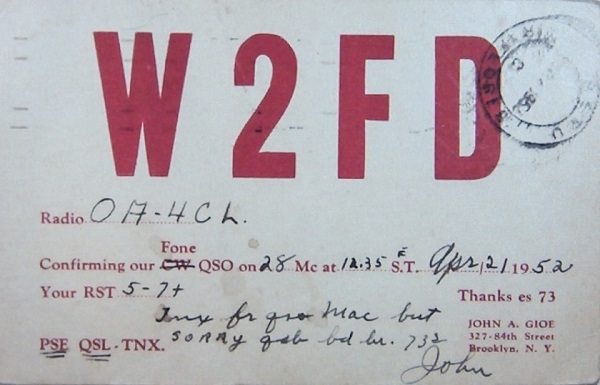 W2FD
Radio OA-4CL.
Fone
Confirming our CW QSO on 28 Mc at 12.35 E S.T. Apr 21 1952
Your RST 5-7+
Thanks es 73
Tnx fr qso Mac but
sorry qsb bd hr. 73s
PSE QSL - TNX.
John
JOHN A. GIOE
327-84th Street
Brooklyn, N. Y.